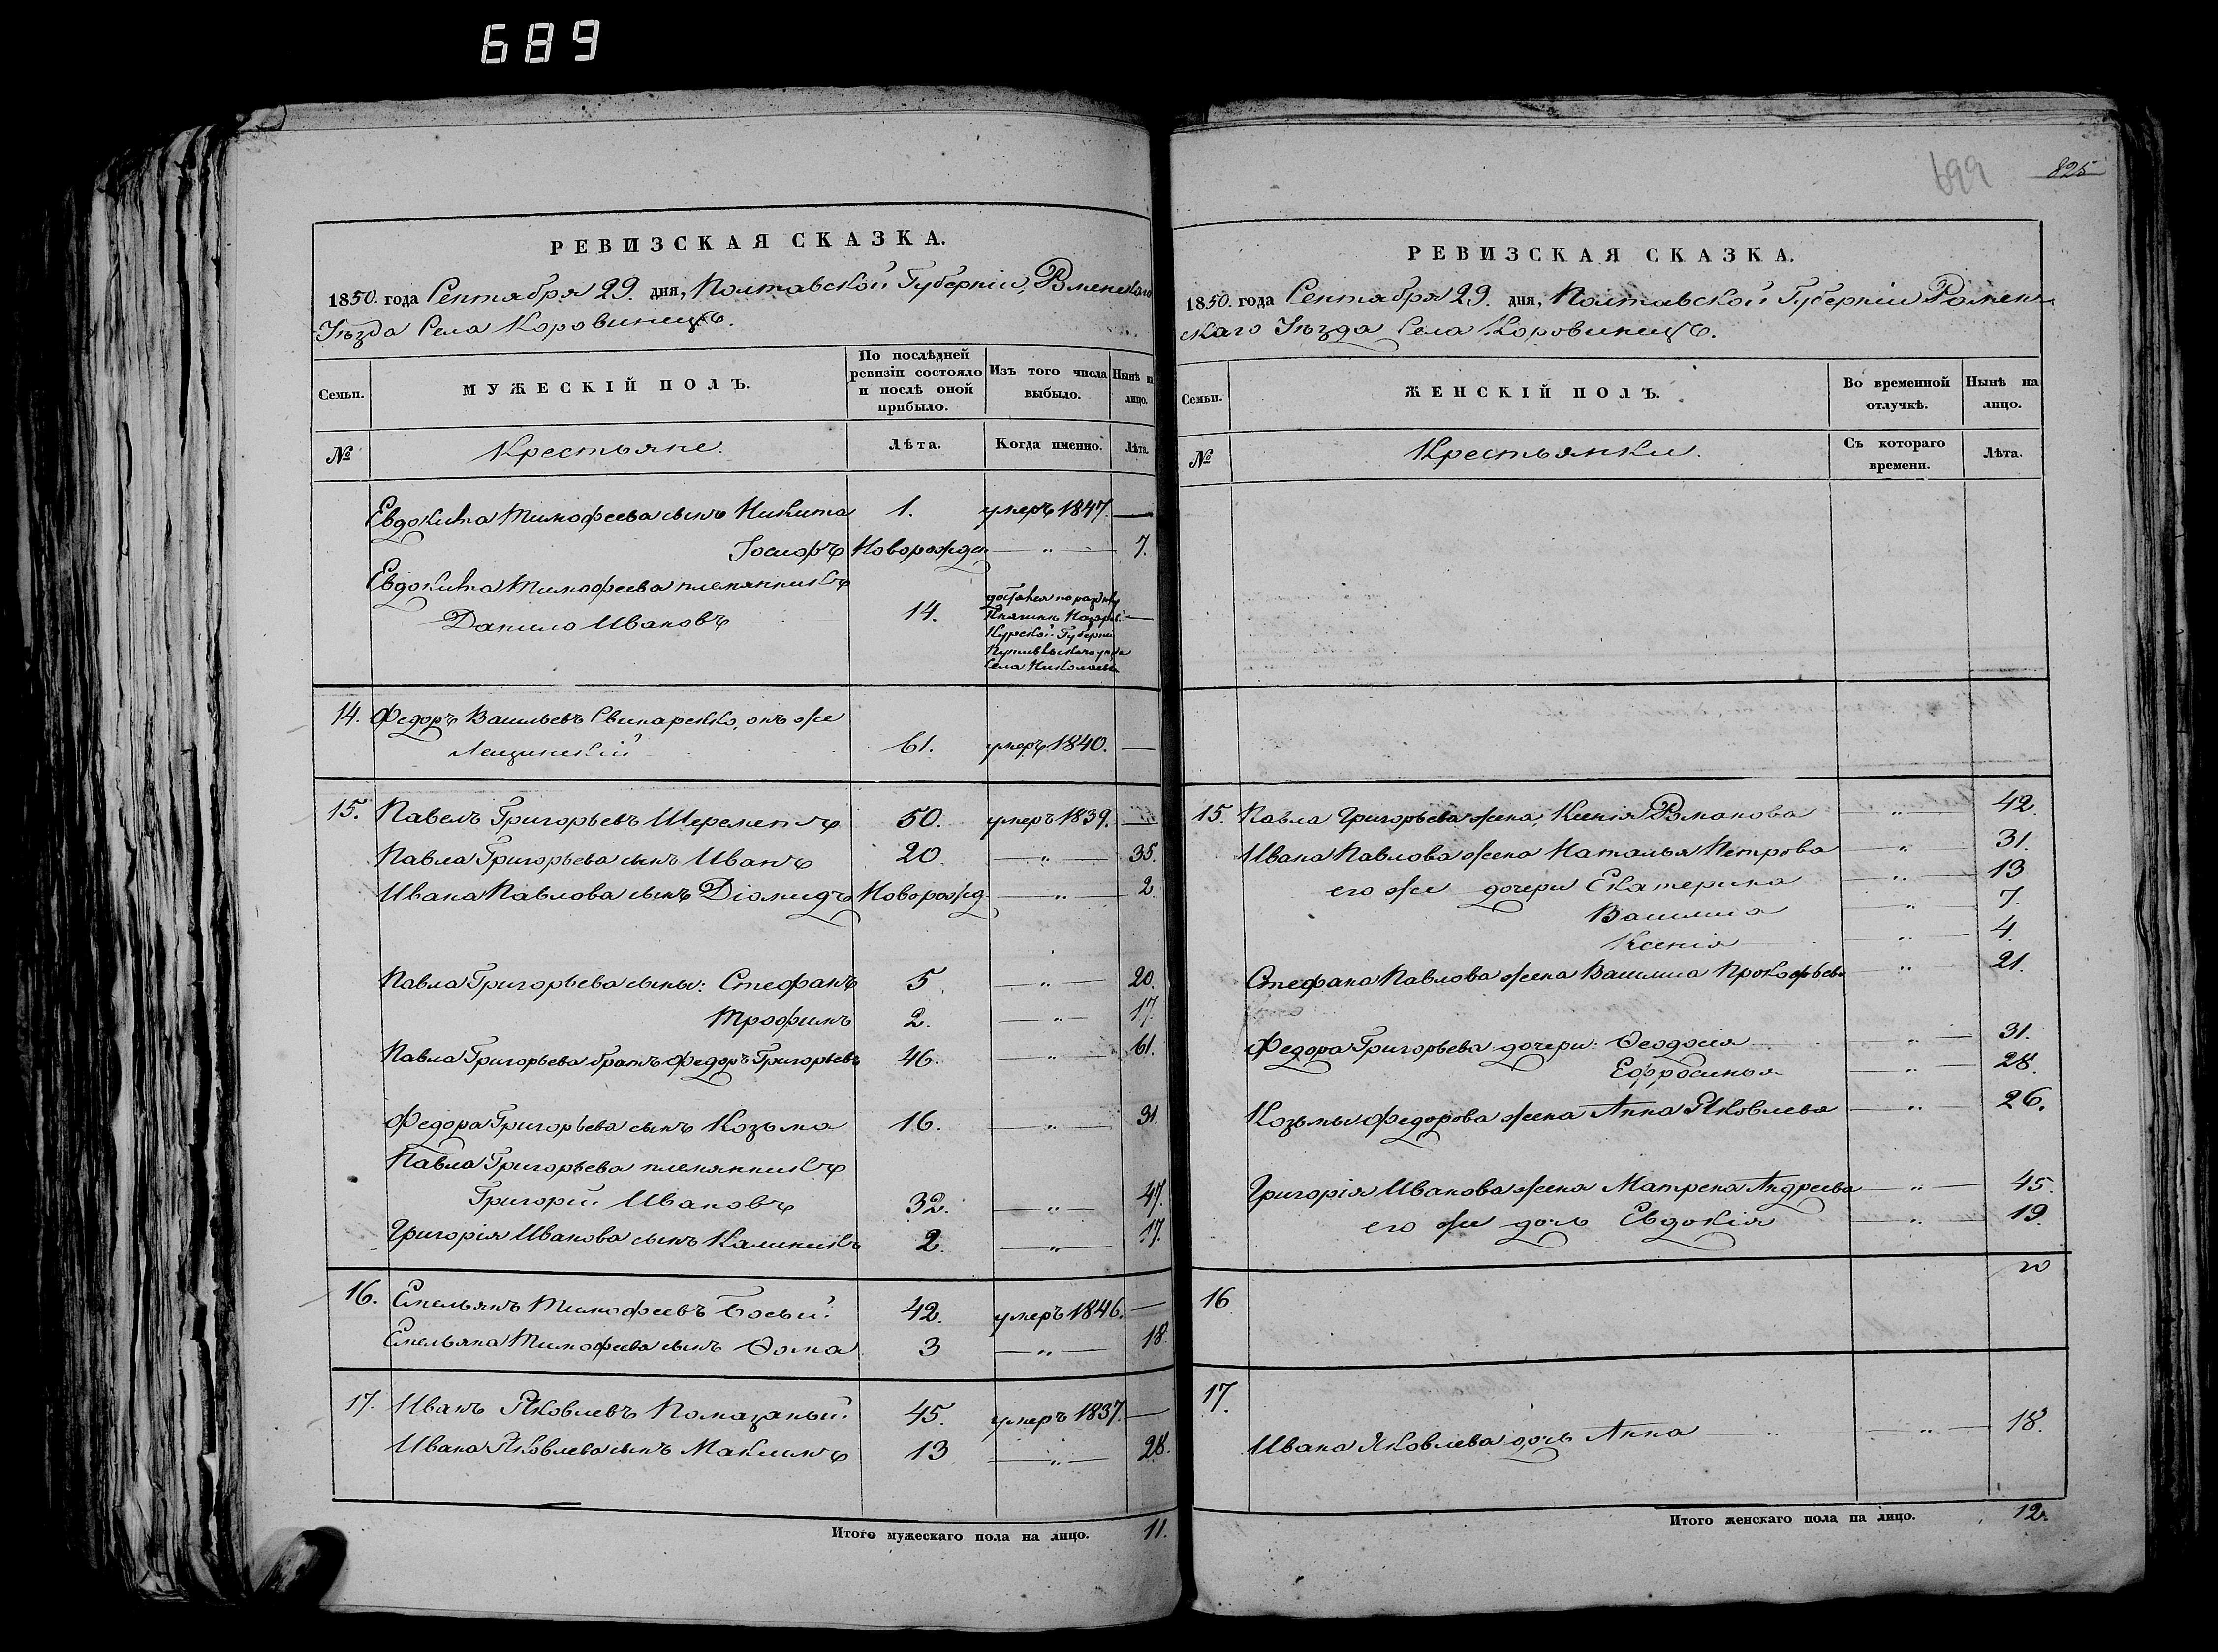 689
РЕВИЗСКАЯ СКАЗКА.
1850. года Сентября 29. дня, Полтавской Губерніи, Роменскаго
Уѣзда Села Коровинецъ.
Семьи.
МУЖЕСКІЙ ПОЛЪ.
По послѣдней ревизіи состояло и послѣ оной прибыло.
Изъ того числа выбыло.
Нынѣ на лицо.
№
Крестьяне.
Лѣта.
Когда именно.
Лѣта.
Евдокима Тимофеева сынъ Никита 1. умеръ 1847. —
Іосифъ Новорожден — " — 7.
Евдокима Тимофеева племянникъ
Данило Ивановъ 14. —
Курской Губерніи
Села Николаевк
14. Федоръ Васильевъ Свинаренко, онъ же
Лещинскій 61. умеръ 1840. —
15. Павелъ Григорьевъ Шереметъ 50. умеръ 1839. —
Павла Григорьева сынъ Иванъ 20. — " — 35.
Ивана Павлова сынъ Діомидъ Новорожд. — " — 2.
Павла Григорьева сыны: Стефанъ 5. — " — 20.
Трофимъ 2. — " — 17.
Павла Григорьева братъ Федоръ Григорьевъ 46. — " — 61.
Федора Григорьева сынъ Козьма 16. — " — 31.
Павла Григорьева племянникъ
Григорій Ивановъ 32. — " — 47.
Григорія Иванова сынъ Калиникъ 2. — " — 17.
16. Емельянъ Тимофеевъ Босый. 42. умеръ 1846. —
Емельяна Тимофеева сынъ Ѳома 3 — " — 18.
17. Иванъ Яковлевъ Помазаный. 45. умеръ 1837. —
Ивана Яковлева сынъ Максимъ 13 — " — 28.
Итого мужескаго пола на лицо. 11.
699
825
РЕВИЗСКАЯ СКАЗКА.
1850. года Сентября 29. дня, Полтавской Губерніи Ромен-
скаго Уѣзда Села Коровинецъ.
Семьи.
ЖЕНСКІЙ ПОЛЪ.
Во временной отлучкѣ.
Нынѣ на лицо.
№
Крестьянки.
Съ котораго времени.
Лѣта.
15. Павла Григорьева жена, Ксенія Романова — " — 42.
Ивана Павлова жена Наталья Петрова — " — 31.
его же дочери Екатерина — " — 13
Васшиса — " — 7.
Ксенія — " — 4.
Стефана Павлова жена Васшиса Прокофьева — " — 21.
Федора Григорьева дочери: Ѳеодосія — " — 31.
Ефросинья — " — 28.
Козьмы Федорова жена Анна Яковлева — " — 26.
Григорія Иванова жена Матрена Андреева — " — 45.
его же дочь Евдокія — " — 19.
16
17.
Ивана Яковлева дочь Анна — " — 18.
Итого женскаго пола на лицо. 12.